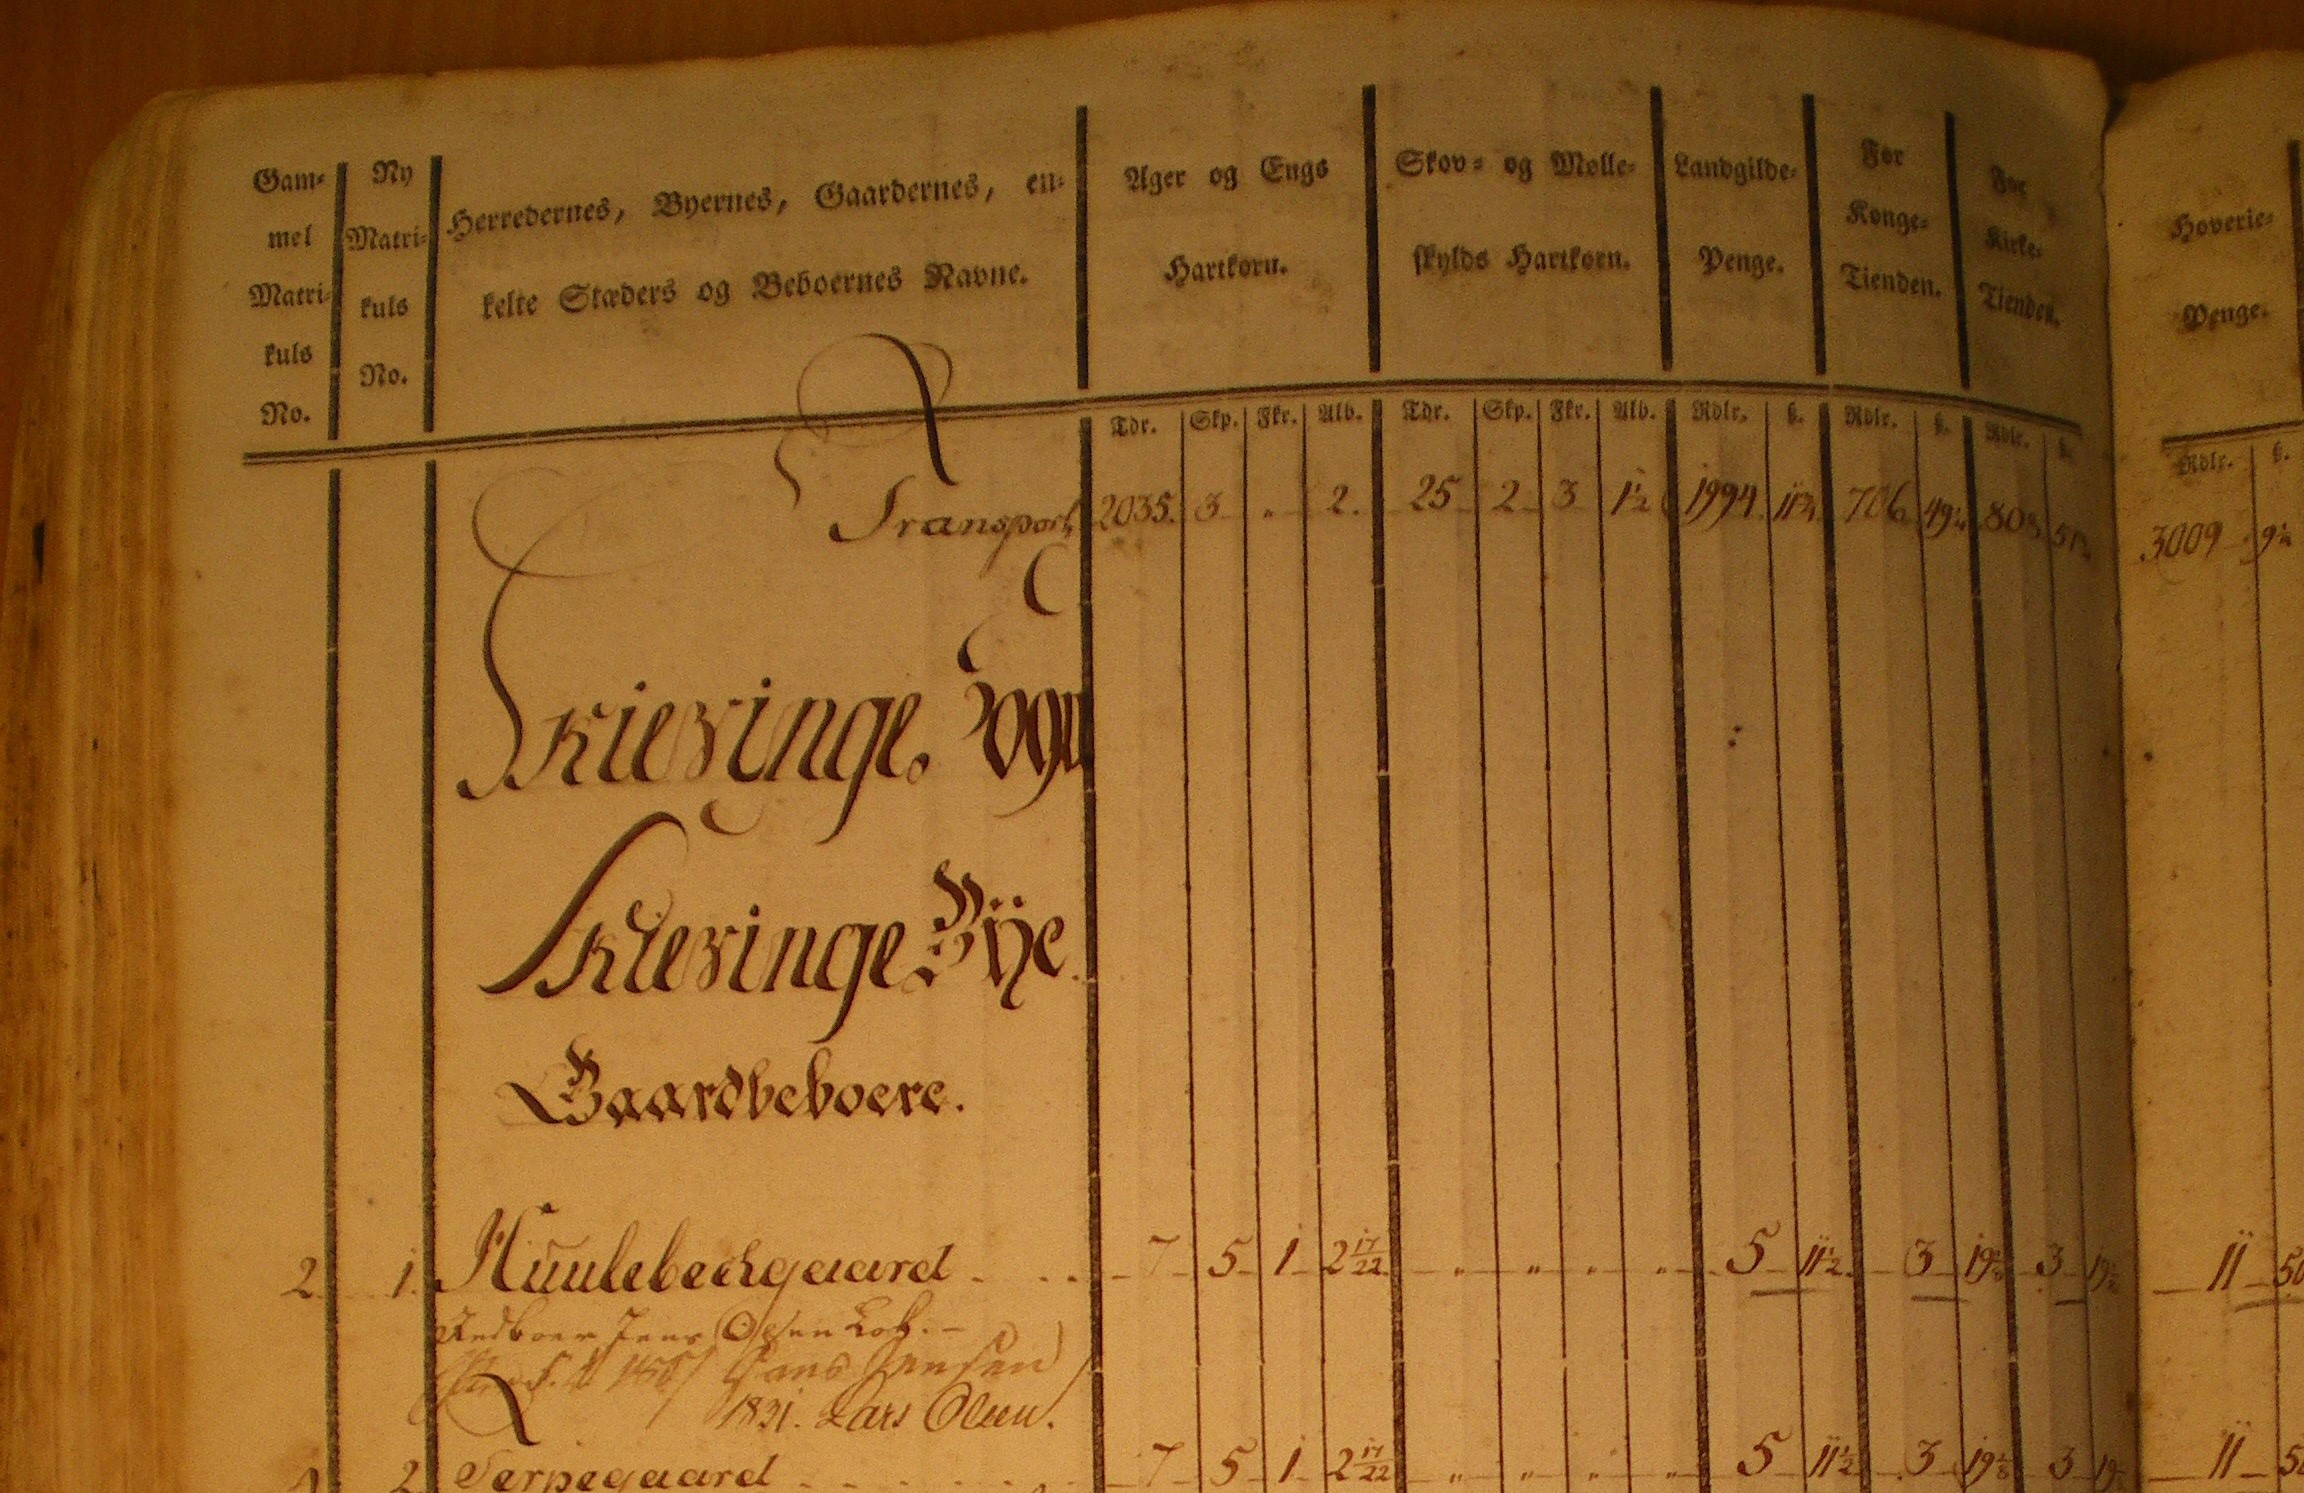 Gam-
mel
Matri-
kuls
No.
Ny
Matri-
kuls
No.
Herredernes, Byernes, Gaardernes, en-
kelte Stæders og Beboernes Navne.
Ager og Engs
Hartkorn.
Skov- og Mølle-
skylds Hartkorn.
Landgilde-
Penge.
For
Konge-
Tienden.
For
Kirke-
Tienden.
Hoverie-
Penge.
Tdr. Skp. Fkr. Alb. Tdr. Skp. Fkr. Alb. Rdlr. ß. Rdlr. ß. Rdlr. ß. Rdlr. ß.
Transport 2035. 3 " 2. 25 2 3 1½ 1994 11¾ 706 49¼ 3009 9¼
Kievinge Sogn
Kievinge Bÿe.
Gaardbeboere.
2 1. Huulebechgaard 7 5 1 2 17/22 " " " " 5 11½ 3 19⅛ 3 11 50
Jens Olsen
Hans Jensen
1831. Lars Olsen.
2 Terpegaard 7 5 1 2 17/22 " " " " 5 11½ 3 19⅛ 3 11